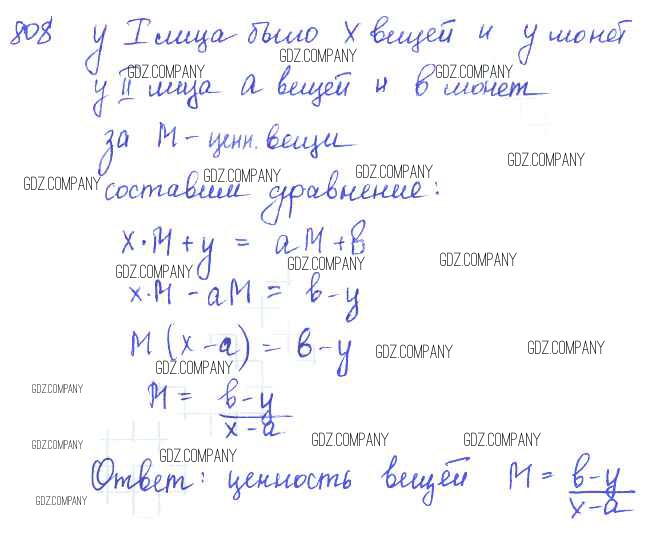 808 у I лица было x вещей и y монет
GDZ.COMPANY
GDZ.COMPANY GDZ.COMPANY
у II лица a вещей и в монет
за М - ценн. вещи
GDZ.COMPANY GDZ.COMPANY GDZ.COMPANY GDZ.COMPANY
составим уравнение:
x·М + y = aМ + в
GDZ.COMPANY GDZ.COMPANY GDZ.COMPANY
x·М - aМ = в - y
М (x - a) = в - y
GDZ.COMPANY GDZ.COMPANY
GDZ.COMPANY
GDZ.COMPANY
М = в - y
x - a
GDZ.COMPANY GDZ.COMPANY GDZ.COMPANY
GDZ.COMPANY
Ответ: ценность вещей М = в - y
x - a
GDZ.COMPANY